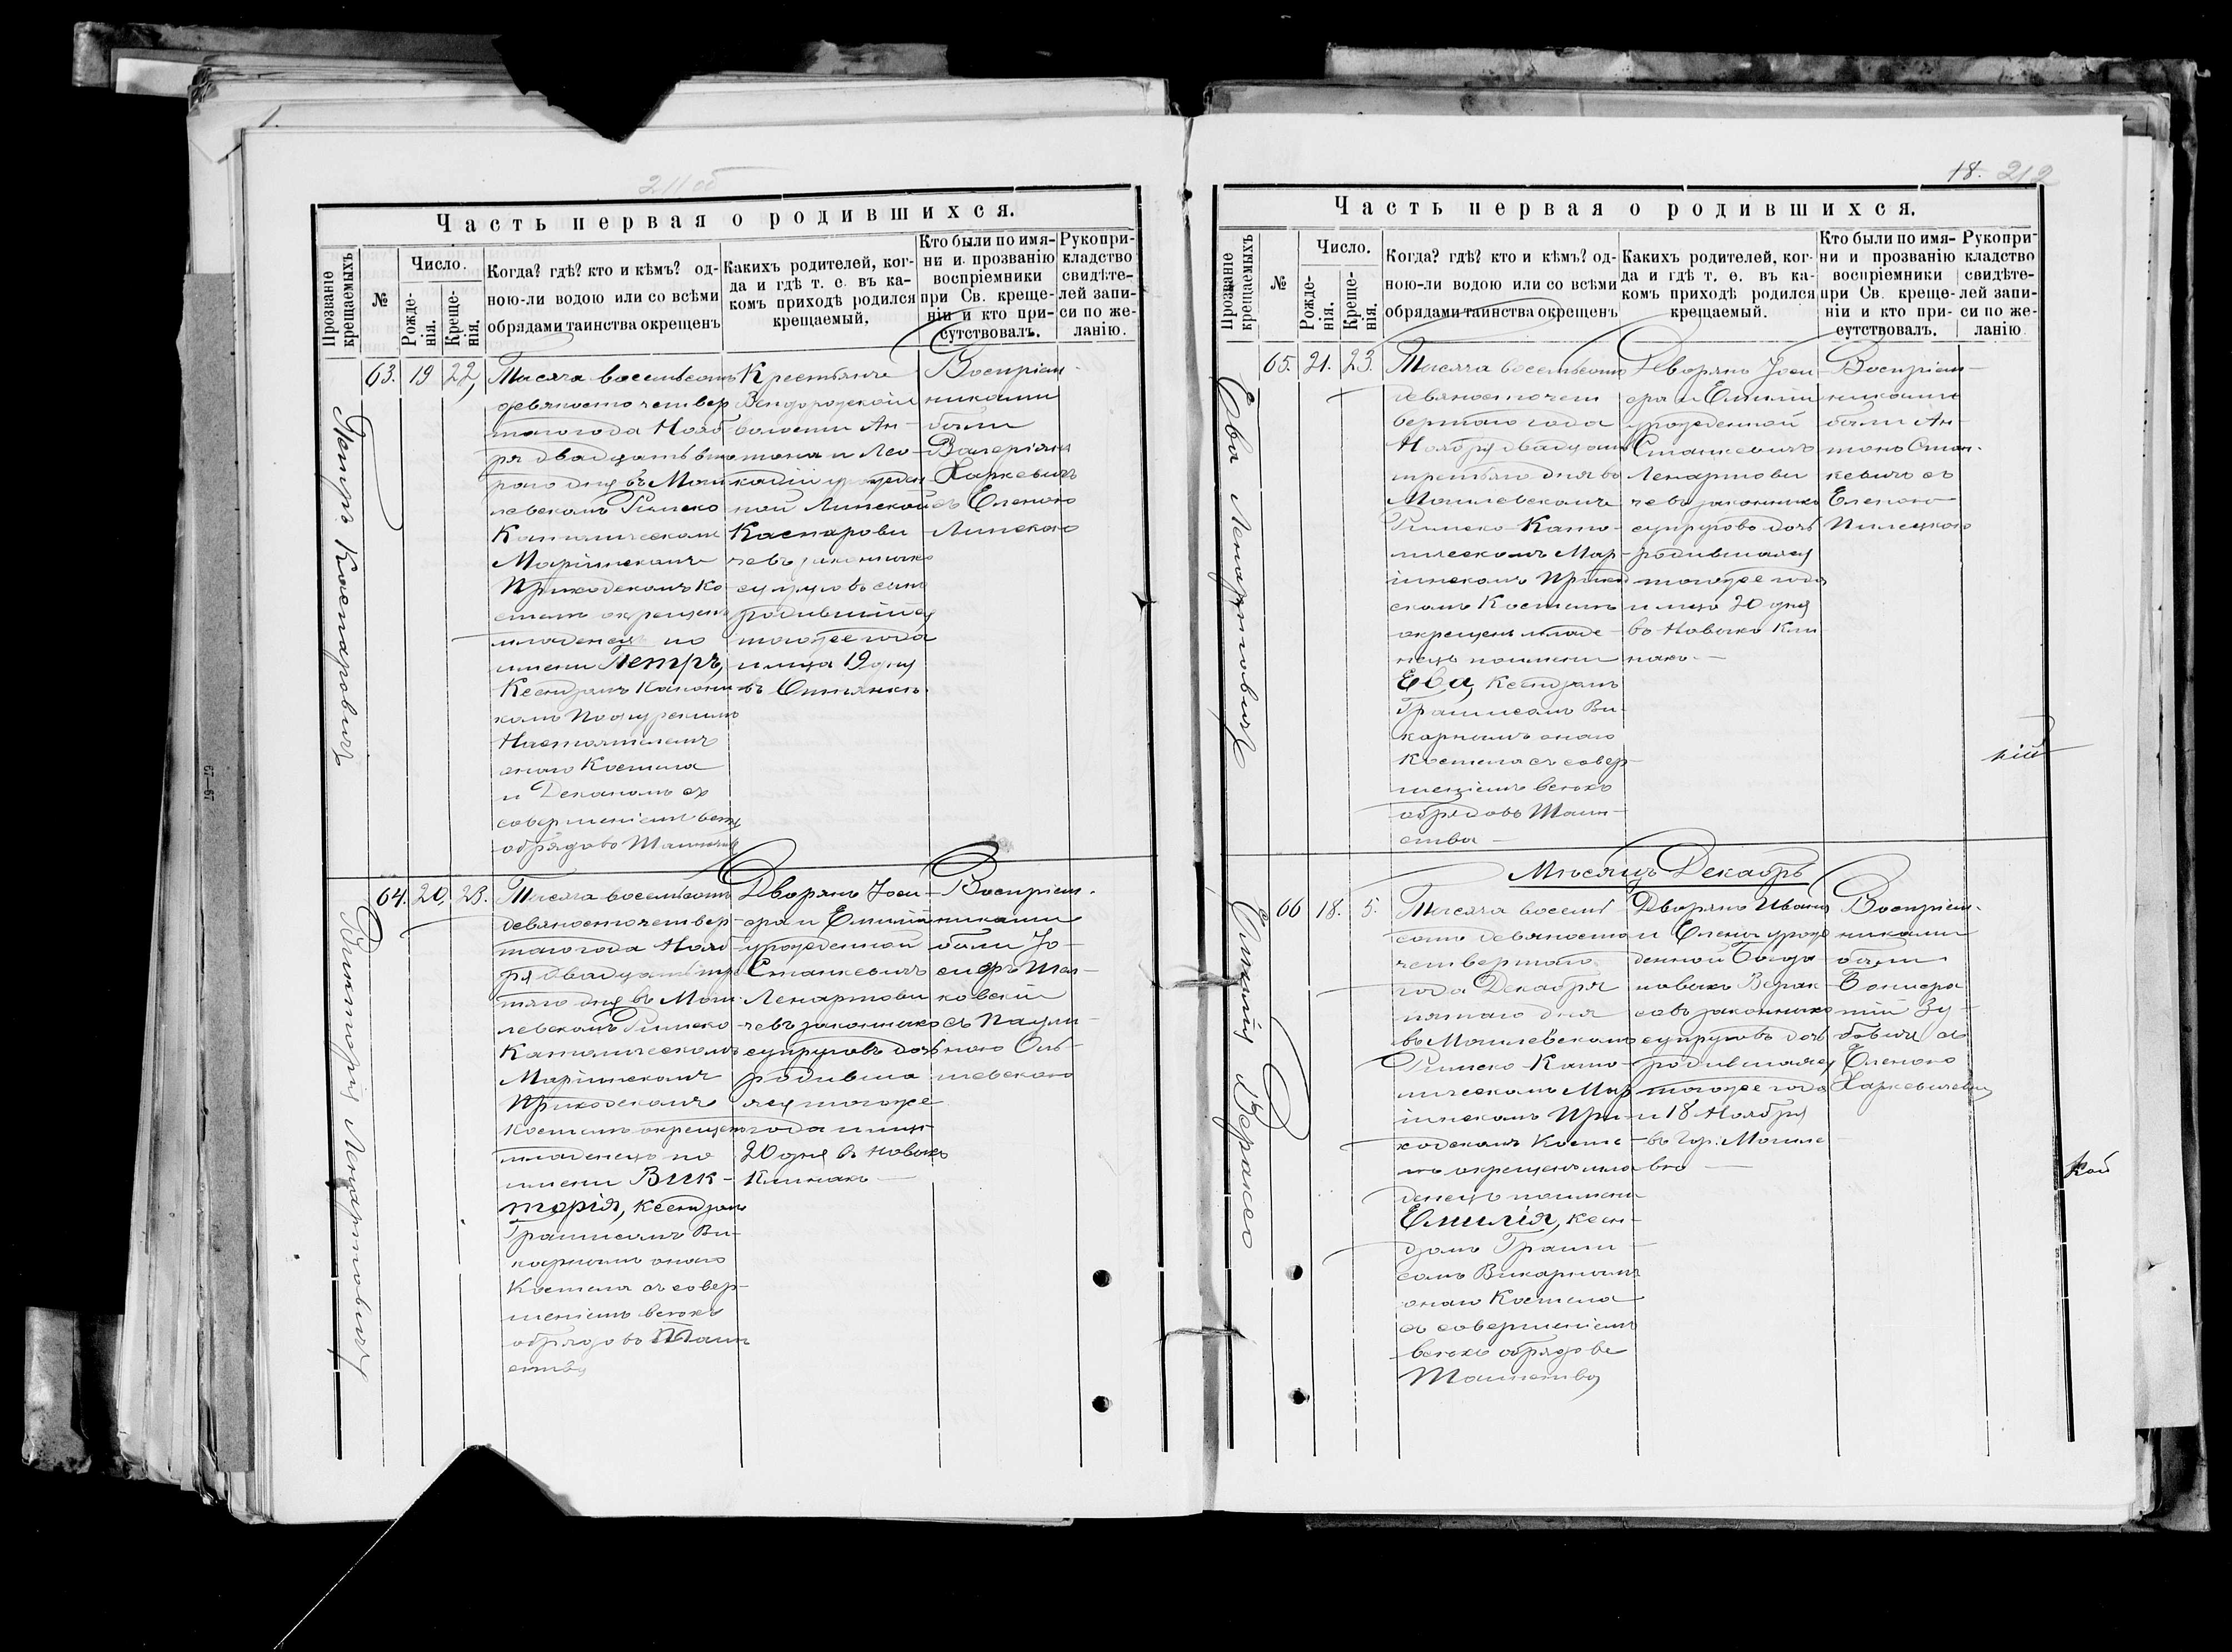 211 об
Часть первая о родившихся.
Прозваніе крещаемыхъ
№
Число.
Рожде-
нія.
Креще-
нія.
Когда? гдѣ? кто и кѣмъ? од-
ною-ли водою или со всѣми
обрядами таинства окрещенъ
Какихъ родителей, ког-
да и гдѣ т. е. въ ка-
комъ приходѣ родился
крещаемый.
Кто были по имя-
ни и прозванію
воспріемники
при Св. креще-
ніи и кто при-
сутствовалъ.
Рукопри-
кладство
свидѣте-
лей запи-
си по же-
ланію.
Петръ Каспаровичъ
63.
19
22,
Тысяча восемьсотъ
девяносто четвер
таго года Нояб
ря двадцать вто
раго дня въ Моги
левскомъ Римско
Католическомъ
Маріинскомъ
Приходскомъ Ко
стелѣ окрещенъ
младенецъ по
имени Петръ,
Ксендзомъ Канони
комъ
Настоятелемъ
онаго Костела
и Деканомъ съ
совершеніемъ всѣхъ
обрядовъ Таинства
Крестьянъ
волости Ан-
тона и Лео-
кадіи урожден
ной Линской
Каспарови
чевъ законныхъ
супруговъ сынъ
родившійся
тогоже года
и м-ца 19 дня
въ
Воспріем-
никами
были
Валеріанъ
Харкевичъ
съ Еленою
Линскою
Викторія Ленартовичъ
64.
20.
23.
Тысяча восемьсотъ
девяносто четвер-
таго года Нояб-
ря двадцать тре
тяго дня въ Моги
левскомъ Римско
Католическомъ
Маріинскомъ
Приходскомъ
Костелѣ окрещенъ
младенецъ по
имени Вик-
торія, Ксендзомъ
Грамисомъ Ви-
карнымъ онаго
Костела съ совер-
шеніемъ всѣхъ
обрядовъ Таин
ства
Дворянъ Іоси-
фа и Емиліи
урожденной
Станкевичъ
Ленартови
чевъ законныхъ
супруговъ дочь
родивша
яся тогоже
года и м-ца
20 дня въ Новыхъ
Климахъ
Воспріем-
никами
были Іо-
сифъ
ковскій
съ Паули-
ною Оль-
шевскою
18. 212
Часть первая о родившихся.
Прозваніе крещаемыхъ
№
Число.
Рожде-
нія.
Креще-
нія.
Когда? гдѣ? кто и кѣмъ? од-
ною-ли водою или со всѣми
обрядами таинства окрещенъ
Какихъ родителей, ког-
да и гдѣ т. е. въ ка-
комъ приходѣ родился
крещаемый.
Кто были по имя-
ни и прозванію
воспріемники
при Св. креще-
ніи и кто при-
сутствовалъ.
Рукопри-
кладство
свидѣте-
лей запи-
си по же-
ланію.
Ева Ленартовичъ
65.
21.
23.
Тысяча восемьсотъ
девяносто чет
вертаго года
Ноября двадцать
третьяго дня въ
Могилевскомъ
Римско-Като-
лическомъ Мар-
іинскомъ Приход
скомъ Костелѣ
окрещенъ младе-
нецъ по имени
Ева, Ксендзомъ
Грамисомъ Ви-
карнымъ онаго
Костела съ совер-
шеніемъ всѣхъ
обрядовъ Таин-
ства
Дворянъ Іоси-
фа и Емиліи
урожденной
Станкевичъ
Ленартови
чевъ законныхъ
супруговъ дочь
родившаяся
тогоже года
и м-ца 20 дня
въ Новыхъ Кли
махъ
Воспріем-
никами
были Ан-
тонъ Стан-
кевичъ съ
Еленою
Пилецкою
Мѣсяцъ Декабрь
Емилія Вераксо
66
18.
5.
Тысяча восемь
сотъ девяносто
четвертаго
года Декабря
пятаго дня
въ Могилевскомъ
Римско-Като-
лическомъ Мар
іинскомъ При-
ходскомъ Косте
лѣ окрещенъ мла
денецъ по имени
Емилія, Ксен-
дзомъ Грами
сомъ Викарнымъ
онаго Костела
съ совершеніемъ
всѣхъ обрядовъ
Таинства
Дворянъ Ивана
и Елены урож
денной Богда
новыхъ Верак
совъ законныхъ
супруговъ дочь
родившаяся
тогоже года
и 18 Ноября
въ Гор: Могиле
вѣ
Воспріем-
никами
были
Бонифа
тій Зу-
бовичъ съ
Еленою
Харкевичевой
кій
кой